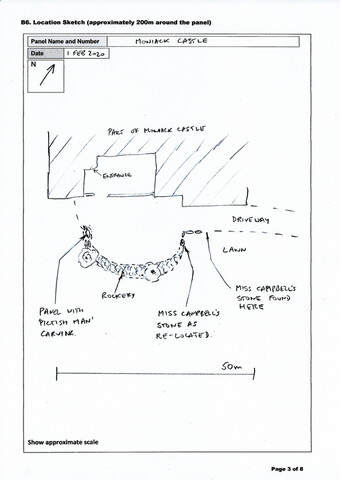 B6. Location Sketch (approximately 200m around the panel)
Panel Name and Number MONIACK CASTLE
Date 1 FEB 2020
N
PART OF MONIACK CASTLE
ENTRANCE
DRIVEWAY
LAWN
ROCKERY
PANEL WITH
'PICTISH MAN'
CARVING.
MISS CAMPBELL'S
STONE AS
RE-LOCATED.
MISS CAMPBELL'S
STONE FOUND
HERE
50m
Show approximate scale
Page 3 of 8